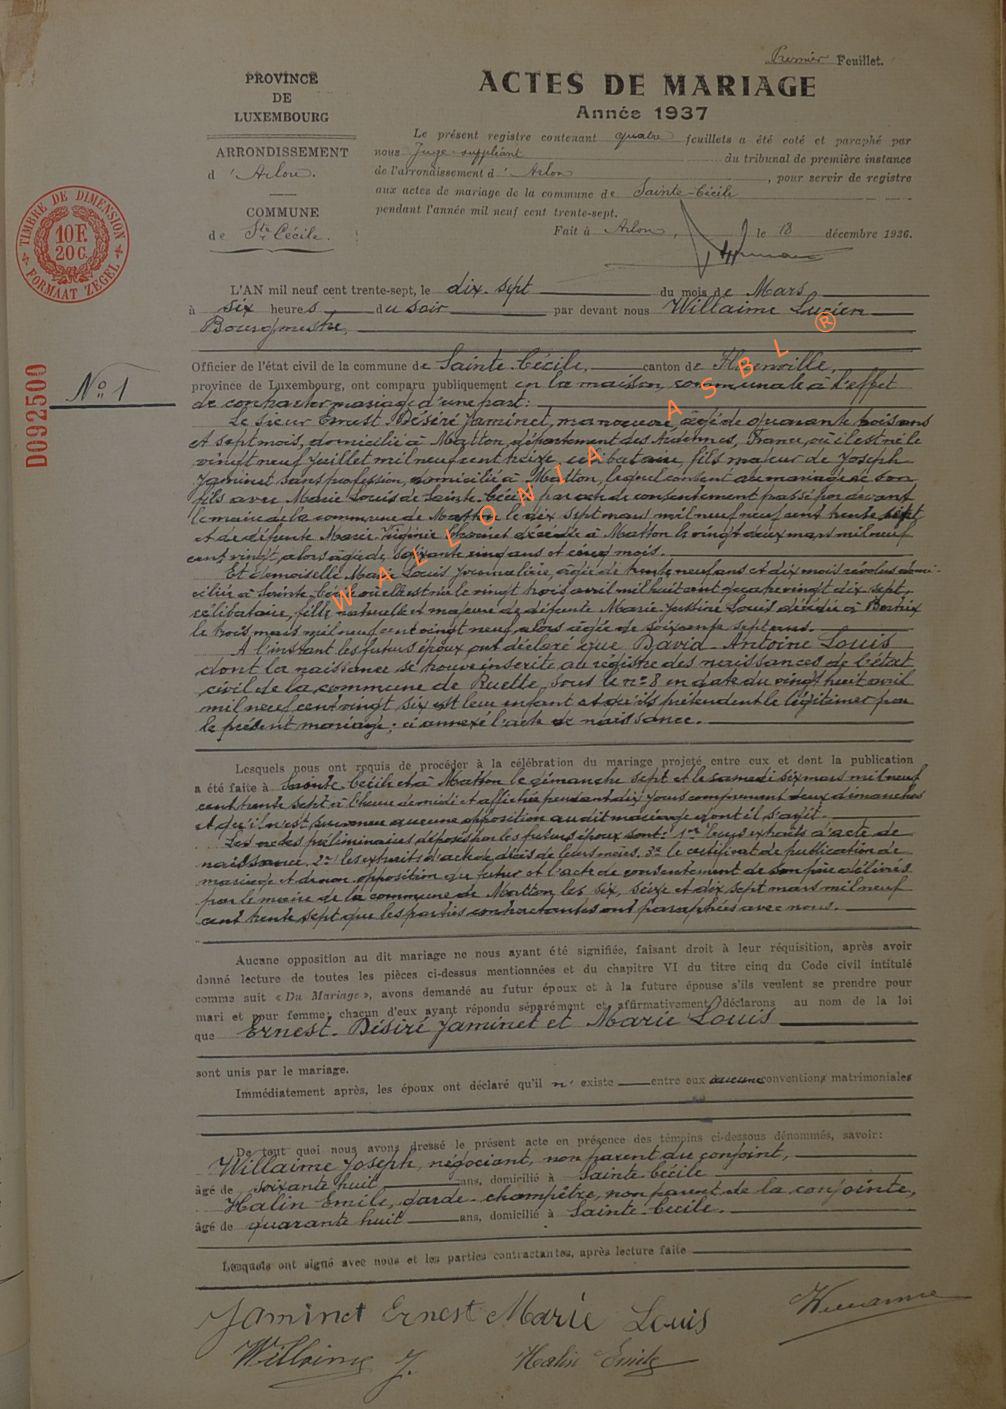 Premier Feuillet.
PROVINCE
DE
LUXEMBOURG
ARRONDISSEMENT
d'Arlon.
COMMUNE
de Ste Cécile.
ACTES DE MARIAGE
Année 1937
Le présent registre contenant quatre feuillets a été coté et paraphé par
nous Juge suppléant du tribunal de première instance
de l'arrondissement d'Arlon, pour servir de registre
aux actes de mariage de la commune de Sainte-Cécile
pendant l'année mil neuf cent trente-sept.
Fait à Arlon, le 18 décembre 1936.
TIMBRE DE DIMENSION
10 F.
20 C.
FORMAAT ZEGEL
D092500
N° 1
L'AN mil neuf cent trente-sept, le dix-sept du mois de Mars
à six heures du soir par devant nous Willaime Lucien
Bourgmestre,
Officier de l'état civil de la commune de Sainte-Cécile, canton de Florenville,
province de Luxembourg, ont comparu publiquement en la maison communale à l'effet
de contracter mariage d'une part:
Le sieur Ernest Désiré Jaminet, manoeuvre, âgé de quarante trois ans
et sept mois, domicilié à Matton, département des Ardennes, France, où il est né le
vingt neuf Juillet mil neuf cent treize, célibataire, fils majeur de Joseph
Jaminet sans profession, domicilié à Matton, lequel consent au mariage de son
fils avec Marie Louis de Sainte-Cécile par acte de consentement passé par devant
le maire de la commune de Matton le dix sept mars mil neuf cent trente sept
et de défunte Marie Virginie décédée à Matton le vingt deux mars mil neuf
cent vingt, alors âgée de soixante cinq ans et cinq mois.
Et demoiselle Marie Louis Journalière, âgée de trente neuf ans et dix mois révolus domi-
ciliée à Sainte-Cécile où elle est née le vingt trois avril mil huit cent quatre vingt dix sept,
célibataire, fille naturelle et majeure de défunte Marie-Justine Louis décédée à Bertrix
le trois mars mil neuf cent vingt neuf, alors âgée de soixante sept ans.
A l'instant les futurs époux ont déclaré que David-Antoine Louis
dont la naissance se trouve inscrite au registre des naissances de l'état
civil de la commune de Ruette, sous le n° 8 en date du vingt huit avril
mil neuf cent vingt six est leur enfant et qu'ils prétendent le légitimer par
le présent mariage; ci annexé l'acte de naissance.
Lesquels nous ont requis de procéder à la célébration du mariage projeté entre eux et dont la publication
a été faite à Sainte-Cécile et à Matton le dimanche sept et le samedi six mars mil neuf
cent trente sept à l'heure de midi et affichée pendant dix jours comprenant deux dimanches
et qu'il n'est survenu aucune opposition au dit mariage dont il s'agit.
Les actes préliminaires déposés par les futurs époux sont: 1° leurs extraits d'acte de
naissance. 2° les extraits d'acte de décès de leurs mères. 3° le certificat de publication de
mariage et de non opposition du futur et l'acte de consentement de son père délivrés
par le maire de la commune de Matton les six, seize et dix sept mars mil neuf
cent trente sept que les parties contractantes ont paraphées avec nous.
Aucune opposition au dit mariage ne nous ayant été signifiée, faisant droit à leur réquisition, après avoir
donné lecture de toutes les pièces ci-dessus mentionnées et du chapitre VI du titre cinq du Code civil intitulé
comme suit « Du Mariage », avons demandé au futur époux et à la future épouse s'ils veulent se prendre pour
mari et pour femme; chacun d'eux ayant répondu séparément et affirmativement, déclarons au nom de la loi
que Ernest-Désiré Jaminet et Marie Louis
sont unis par le mariage.
Immédiatement après, les époux ont déclaré qu'il n'existe entre eux aucune conventions matrimoniales
De tout quoi nous avons dressé le présent acte en présence des témoins ci-dessous dénommés, savoir:
Willaime Joseph, négociant, non parent du conjoint,
âgé de soixante huit ans, domicilié à Sainte-Cécile
Halin Emile, garde-champêtre, non parent de la conjointe,
âgé de quarante huit ans, domicilié à Sainte-Cécile.
Lesquels ont signé avec nous et les parties contractantes, après lecture faite
Jaminet Ernest Marie Louis Willaime
Willaime J. Halin Emile
WALLONIA ASBL ®